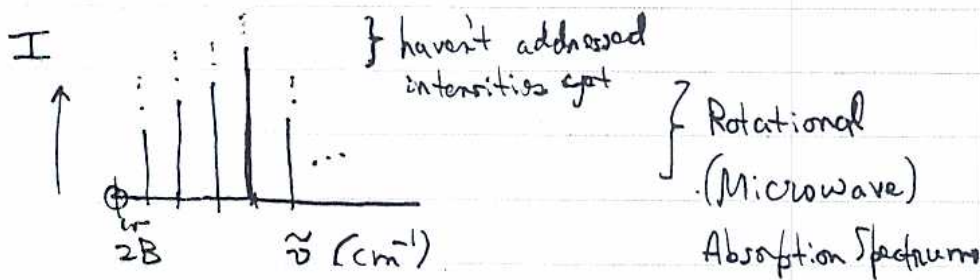 I
} haven't addressed
intensities yet
} Rotational
(Microwave)
Absorption Spectrum
2B
ν̃ (cm⁻¹)
...